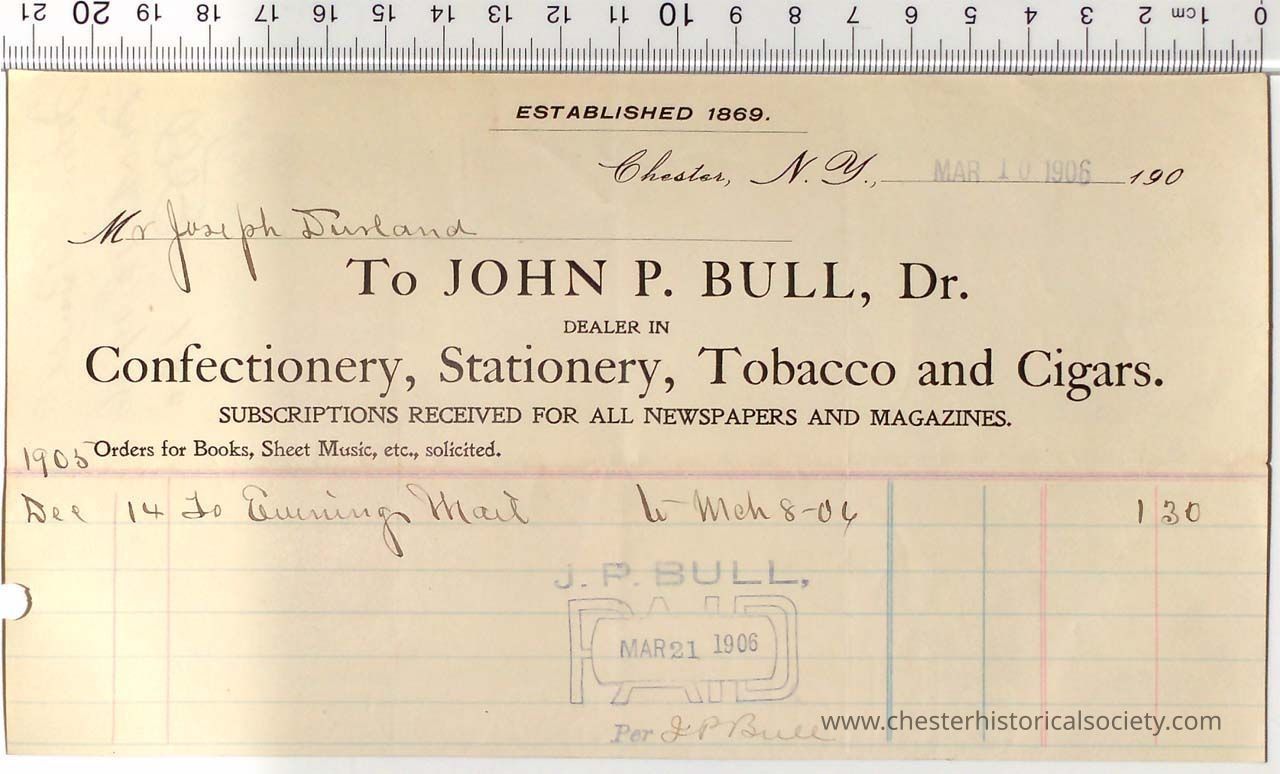 21 20 19 18 17 16 15 14 13 12 11 10 9 8 7 6 5 4 3 2 1cm 0
ESTABLISHED 1869.
Chester, N. Y., MAR 10 1906 190
Mr Joseph Durland
To JOHN P. BULL, Dr.
DEALER IN
Confectionery, Stationery, Tobacco and Cigars.
SUBSCRIPTIONS RECEIVED FOR ALL NEWSPAPERS AND MAGAZINES.
1905 Orders for Books, Sheet Music, etc., solicited.
Dec 14 To Evening Mail to Mch 8-06 1 30
J. P. BULL,
PAID
MAR 21 1906
Per J P Bull
www.chesterhistoricalsociety.com